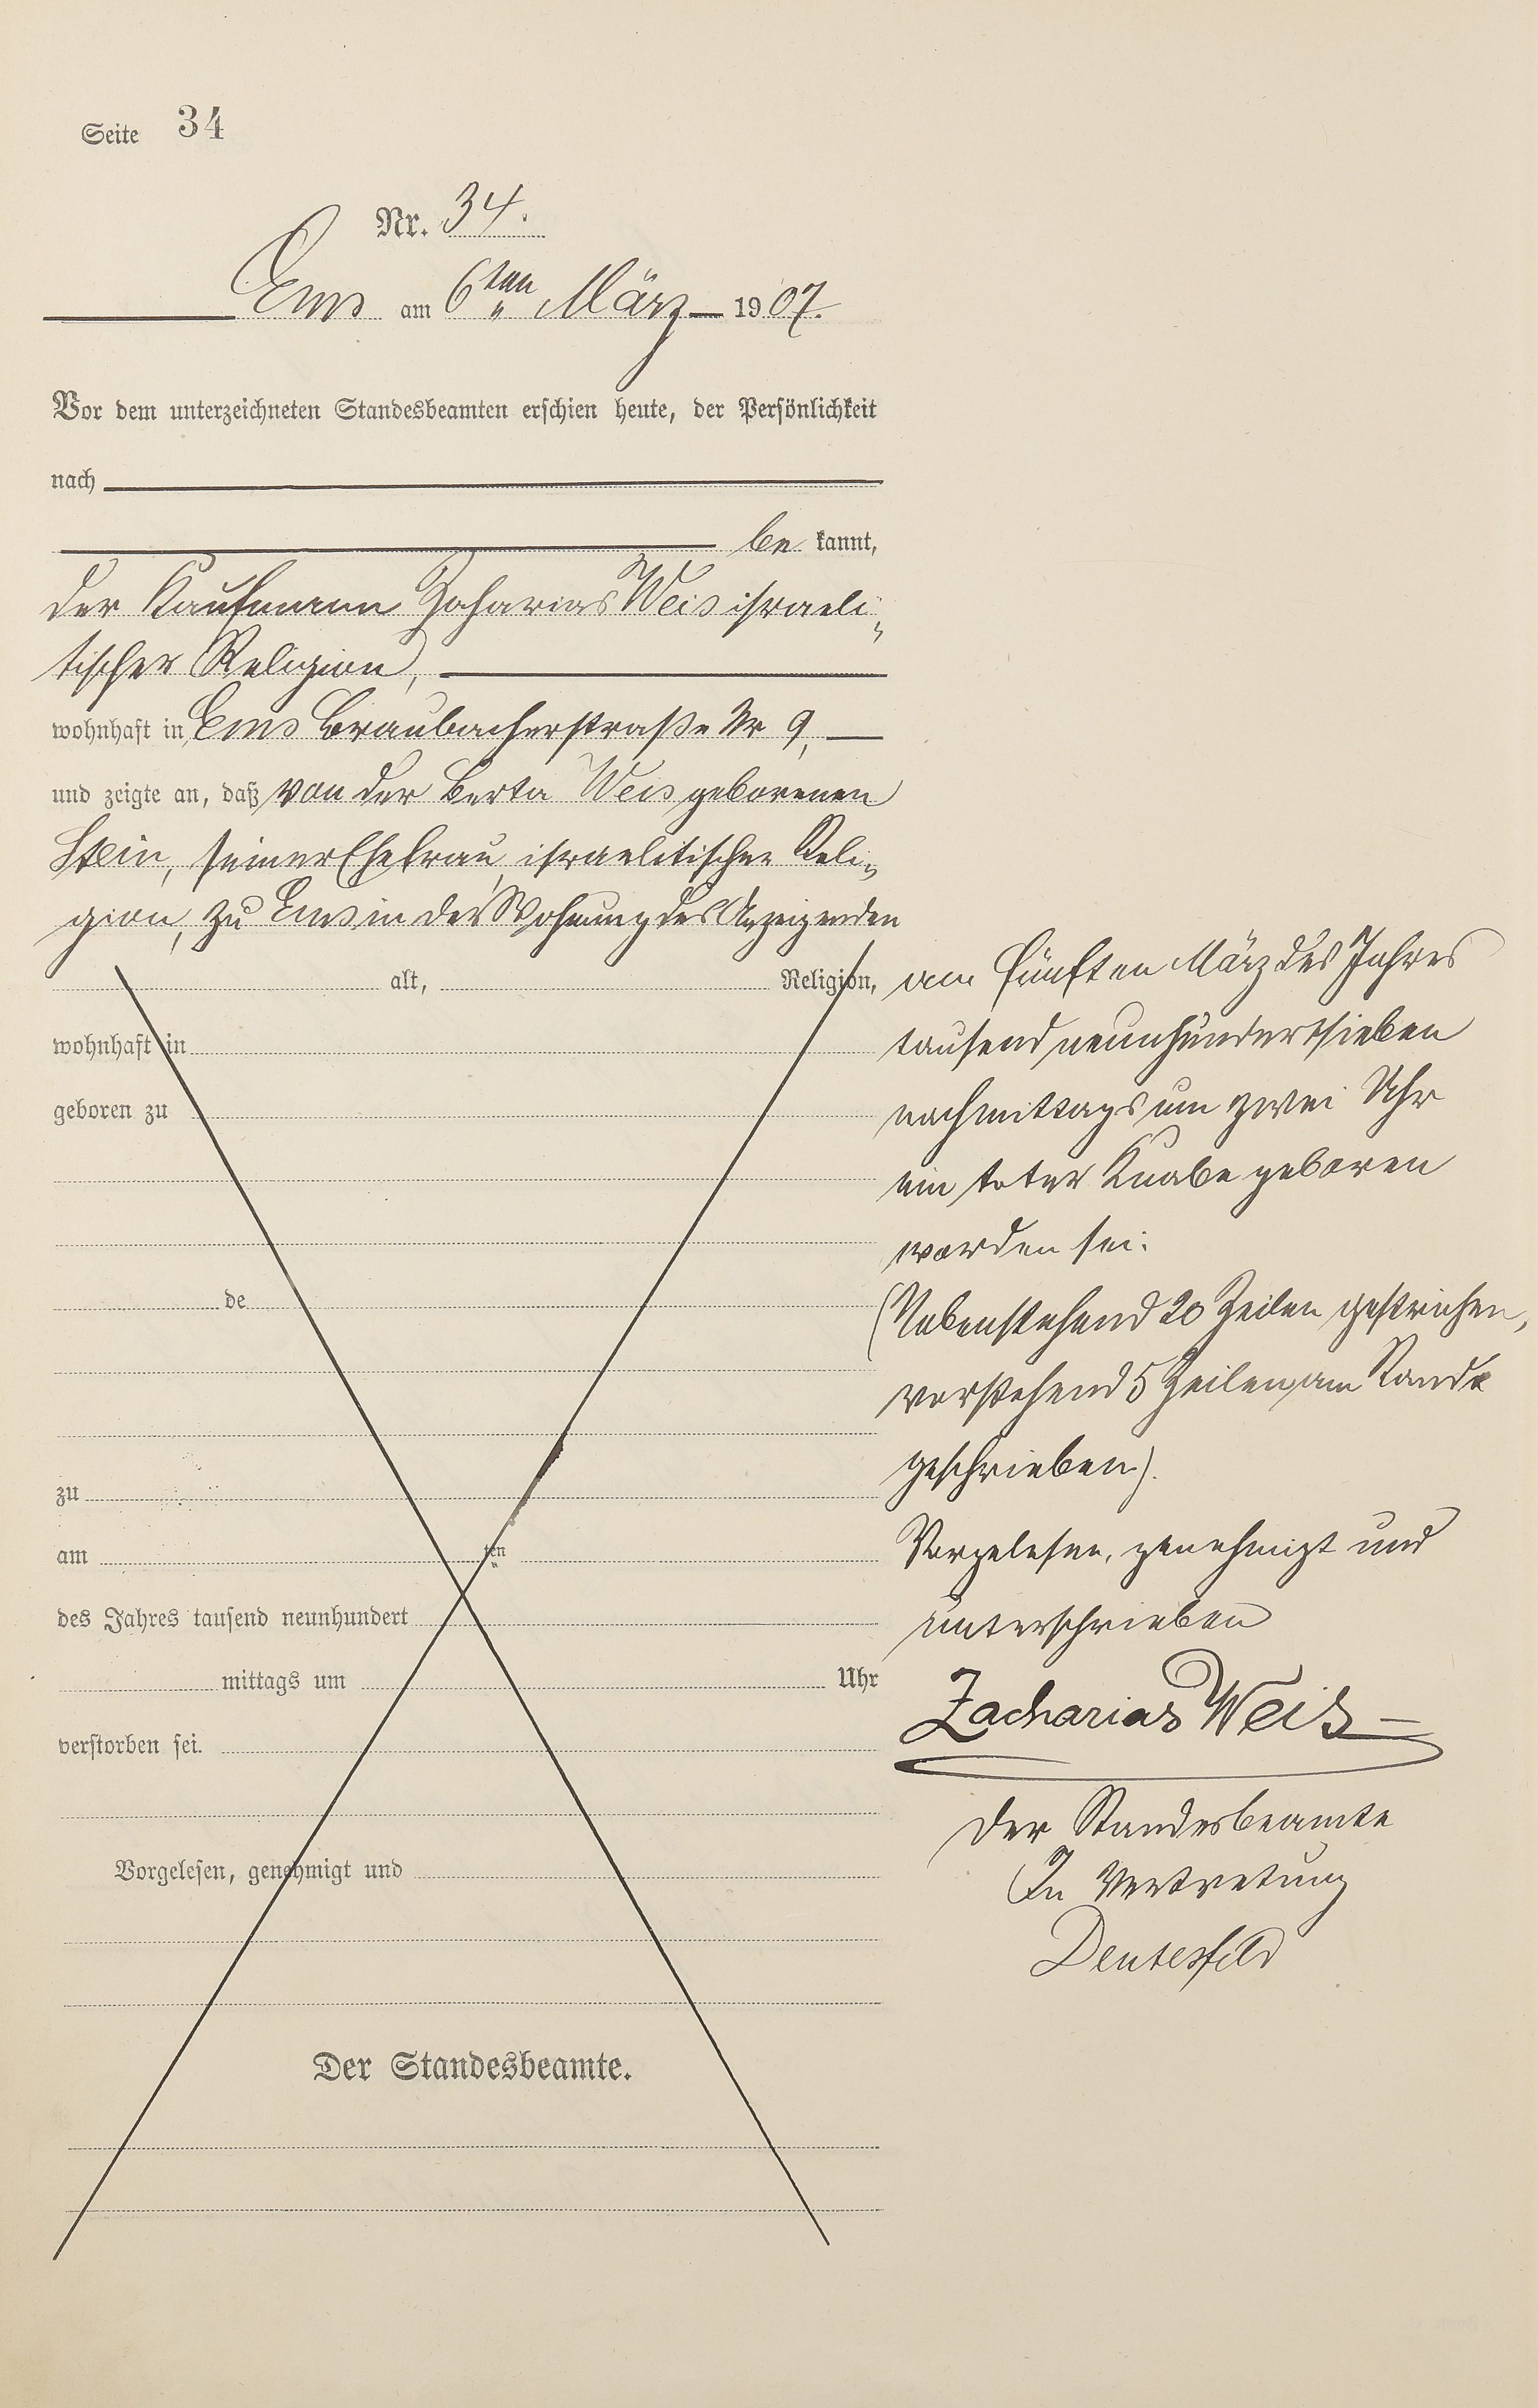 Seite 34
Nr. 34.
Ems am 6ten März 1907.
Vor dem unterzeichneten Standesbeamten erschien heute, der Persönlichkeit
nach
be kannt,
der Kaufmann Zacharias Weis israeli-
tischer Religion,
wohnhaft in Ems Braubacherstraße Nr 9,
und zeigte an, daß von der Berta Weis geborenen
Stein, seiner Ehefrau, israelitischer Reli-
gion, zu Ems in der Wohnung des Anzeigenden
alt, Religion,
wohnhaft in
geboren zu
de
zu
am ten
des Jahres tausend neunhundert
mittags um Uhr
verstorben sei.
Vorgelesen, genehmigt und
Der Standesbeamte.
am fünften März des Jahres
tausend neunhundertsieben
nachmittags um zwei Uhr
ein toter Knabe geboren
worden sei.
(Nebenstehend 20 Zeilen gestrichen,
vorstehend 5 Zeilen am Rande
geschrieben).
Vorgelesen, genehmigt und
unterschrieben
Zacharias Weis
Der Standesbeamte
In Vertretung